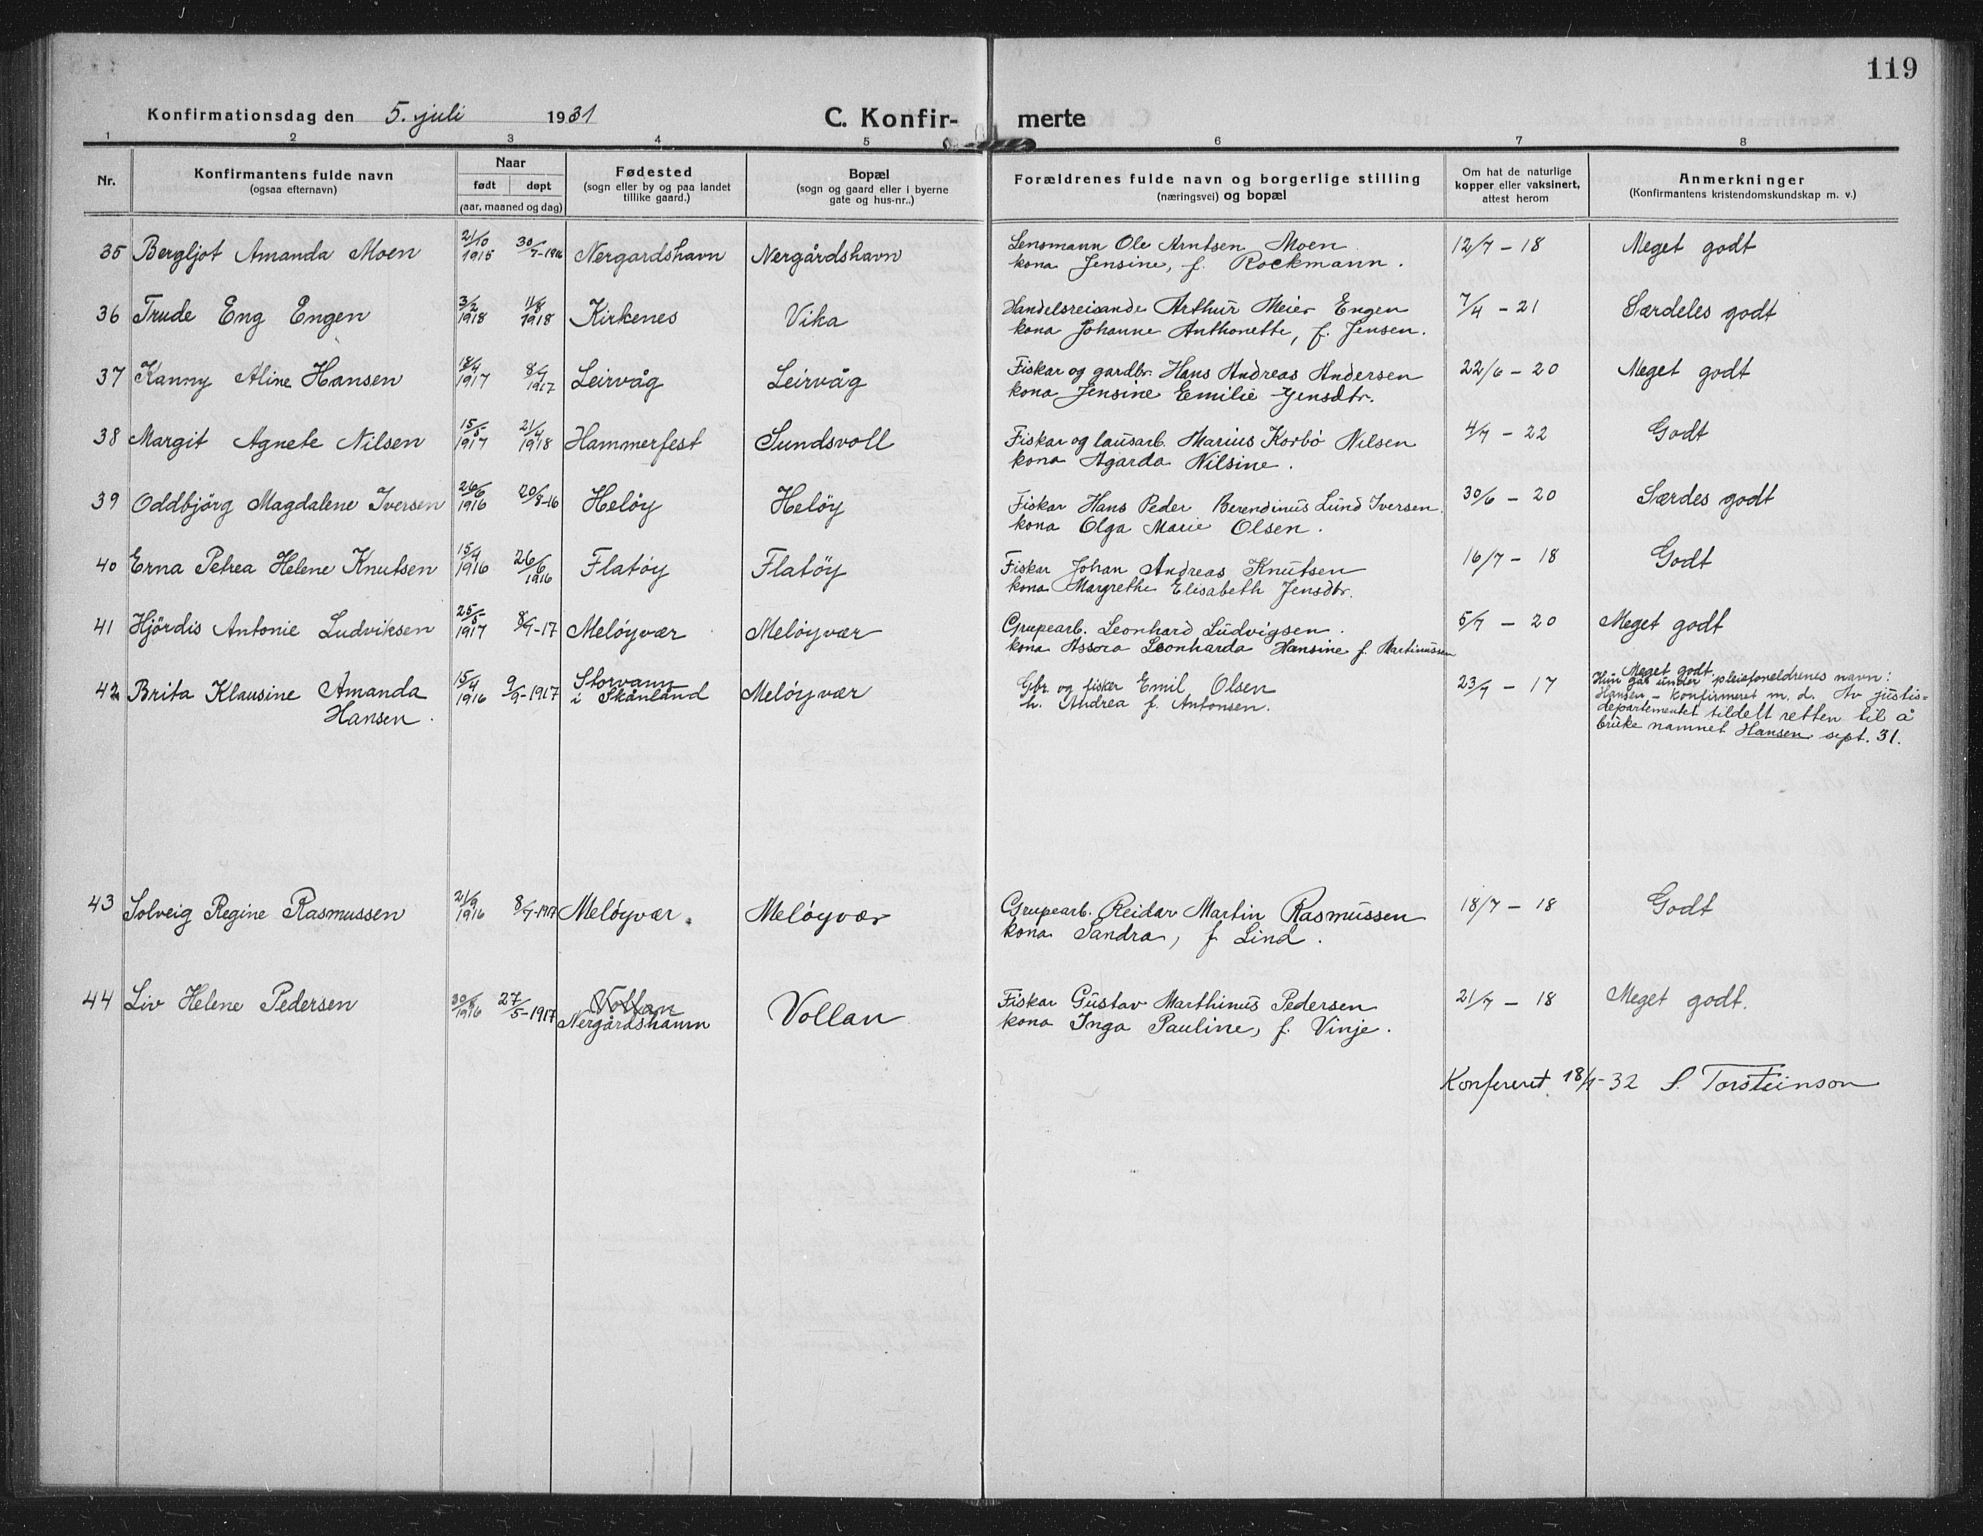 119
Konfirmationsdag den 5. juli 1931 C. Konfir- merte
1 2 3 4 5 6 7 8
Nr. Konfirmantens fulde navn (ogsaa efternavn) Naar født døpt (aar, maaned og dag) Fødested (sogn eller by og paa landet tillike gaard.) Bopæl (sogn og gaard eller i byerne gate og hus-nr..) Forældrenes fulde navn og borgerlige stilling (næringsvei) og bopæl Om hat de naturlige kopper eller vaksinert, attest herom Anmerkninger (Konfirmantens kristendomskundskap m. v.)
35 Bergljot Amanda Moen 21/10 1915 30/7-1916 Nergardshavn Nergårdshavn Lensmann Ole Arntsen Moen 12/7 - 18 Meget godt
kona Jensine, f. Rockmann.
36 Trude Eng Engen 3/2 1918 11/8 1918 Kirkenes Vika Handelsreisande Arthur Meier Engen 7/4 - 21 Særdeles godt
kona Johanne Anthonette, f. Jensen.
37 Kanny Aline Hansen 18/4 1917 8/7 1917 Leirvåg Leirvåg Fiskar og gardbr. Hans Andreas Andersen 22/6 - 20 Meget godt
kona Jensine Emilie Jensdtr.
38 Margit Agnete Nilsen 15/5 1917 21/4 1918 Hammerfest Sundsvoll Fiskar og lausarb. Marius Korbø Nilsen 4/7 - 22 Godt
kona Agarda Nilsine.
39 Oddbjörg Magdalene Iversen 26/6 1916 20/8-16 Heløy Heløy Fiskar Hans Peder Berendinus Lund Iversen 30/6 - 20 Særdes godt
kona Olga Marie Olsen.
40 Erna Petrea Helene Knutsen 15/4 1916 26/6 1916 Flatøy Flatøy Fiskar Johan Andreas Knutsen 16/7 - 18 Godt
kona Margrethe Elisabeth Jensdtr.
41 Hjördis Antonie Ludviksen 25/5 1917 8/7-17 Meløyvær Meløyvær Grupearb. Leonhard Ludvigsen 5/7 - 20 Meget godt
kona Assora Leonharda Hansine f. Martinussen
42 Brita Klausine Amanda Hansen. 15/4 1916 9/9-1917 Storvann i Skånland Meløyvær Gbr. og fisker Emil Olsen 23/7 - 17 Meget godt.
h. Andrea f. Antonsen.
Hun går under pleieforeldrenes navn:
Hansen - konfirmeret m. d. Av justis-
departementet tildelt retten til å
bruke namnet Hansen sept. 31.
43 Solveig Regine Rasmussen 21/9 1916 8/7-1917 Meløyvær. Meløyvær Grupearb. Reidar Martin Rasmussen 18/7 - 18 Godt
kona Sandra, f. Lind.
44 Liv Helene Pedersen 30/8 1916 27/5-1917 Vollan Nergårdshamn Vollan Fiskar Gustav Marthinus Pedersen 21/7 - 18 Meget godt.
kona Inga Pauline, f. Vinje.
Konfereret 18/1-32 S. Torsteinson